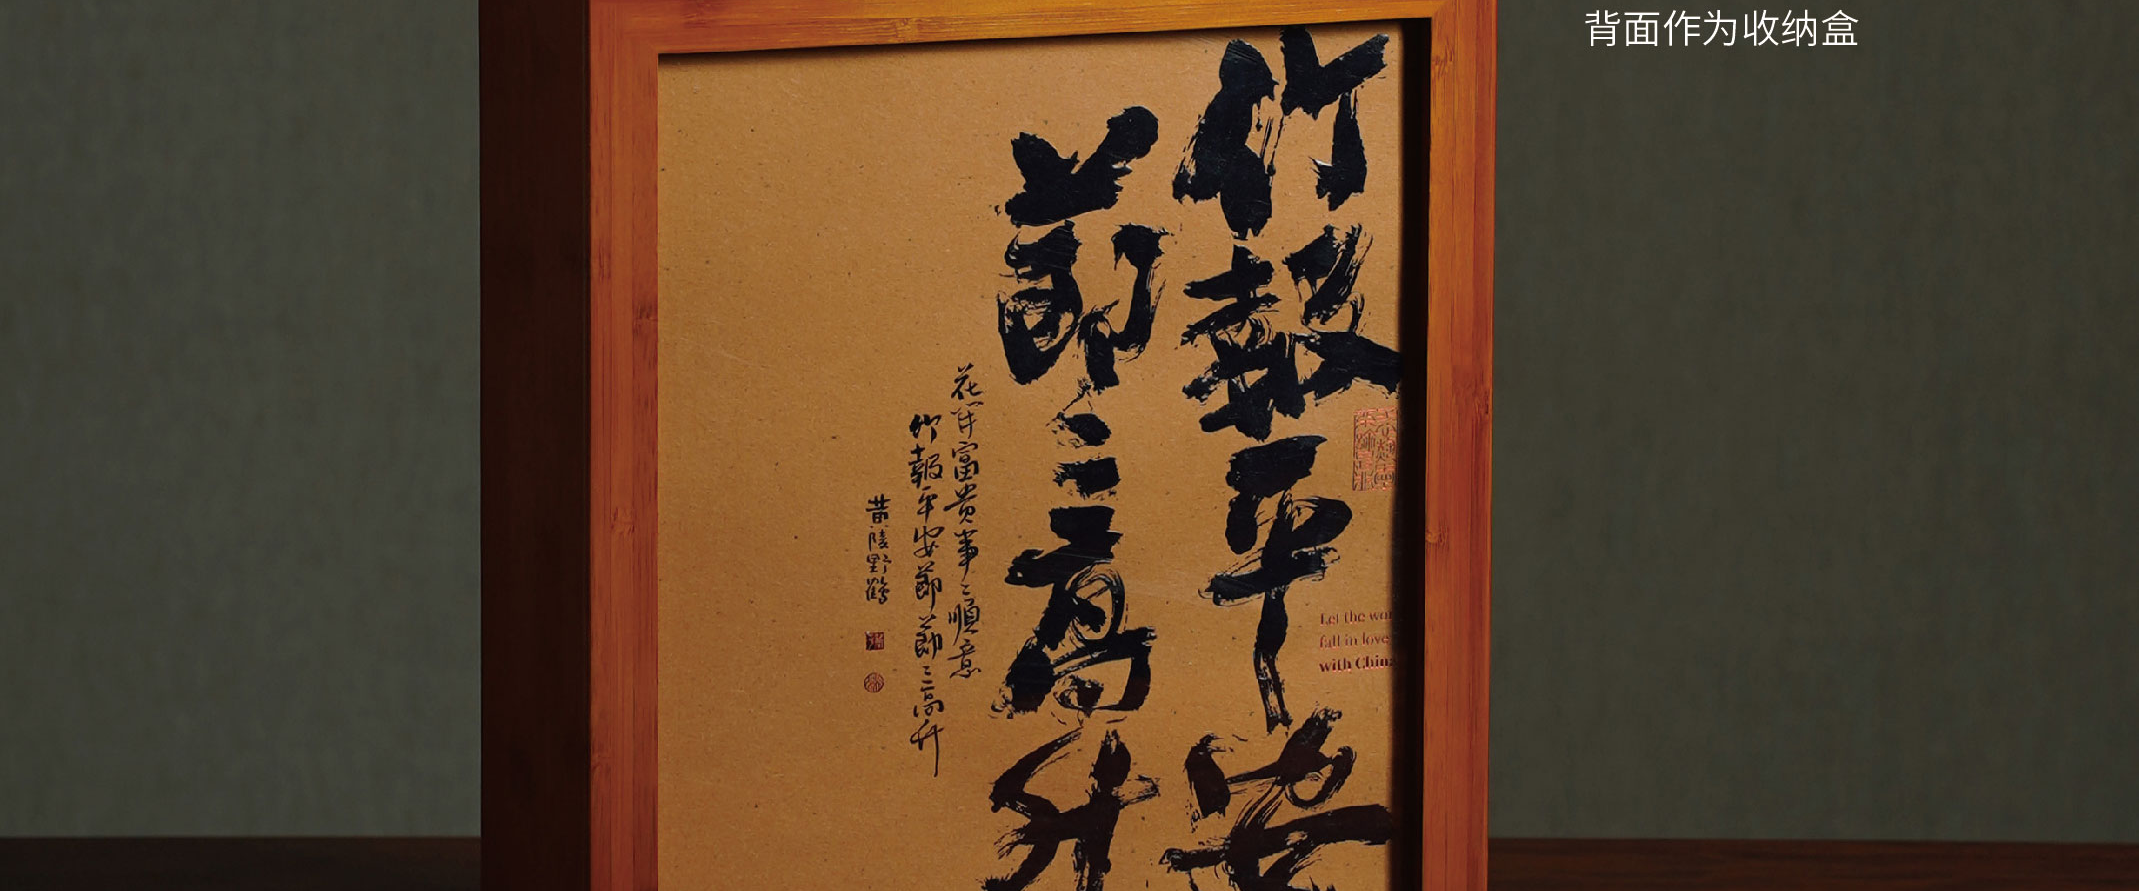 背面作为收纳盒
竹報平安
節〻高升
花开富貴事〻順意
竹報平安節節〻高升
黄陵野鶴
Let the
fall in love
with China